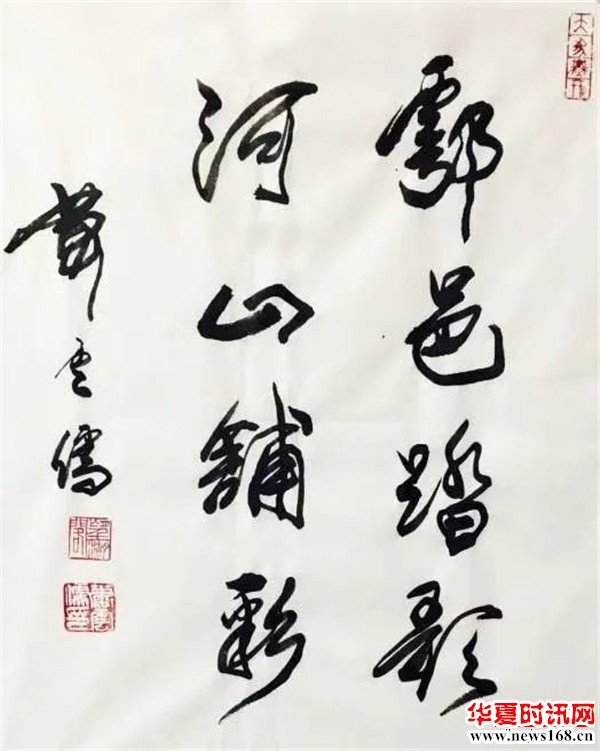 鄠邑踏歌
河山舖彩
蕭云儒
华夏时讯网
www.news168.cn